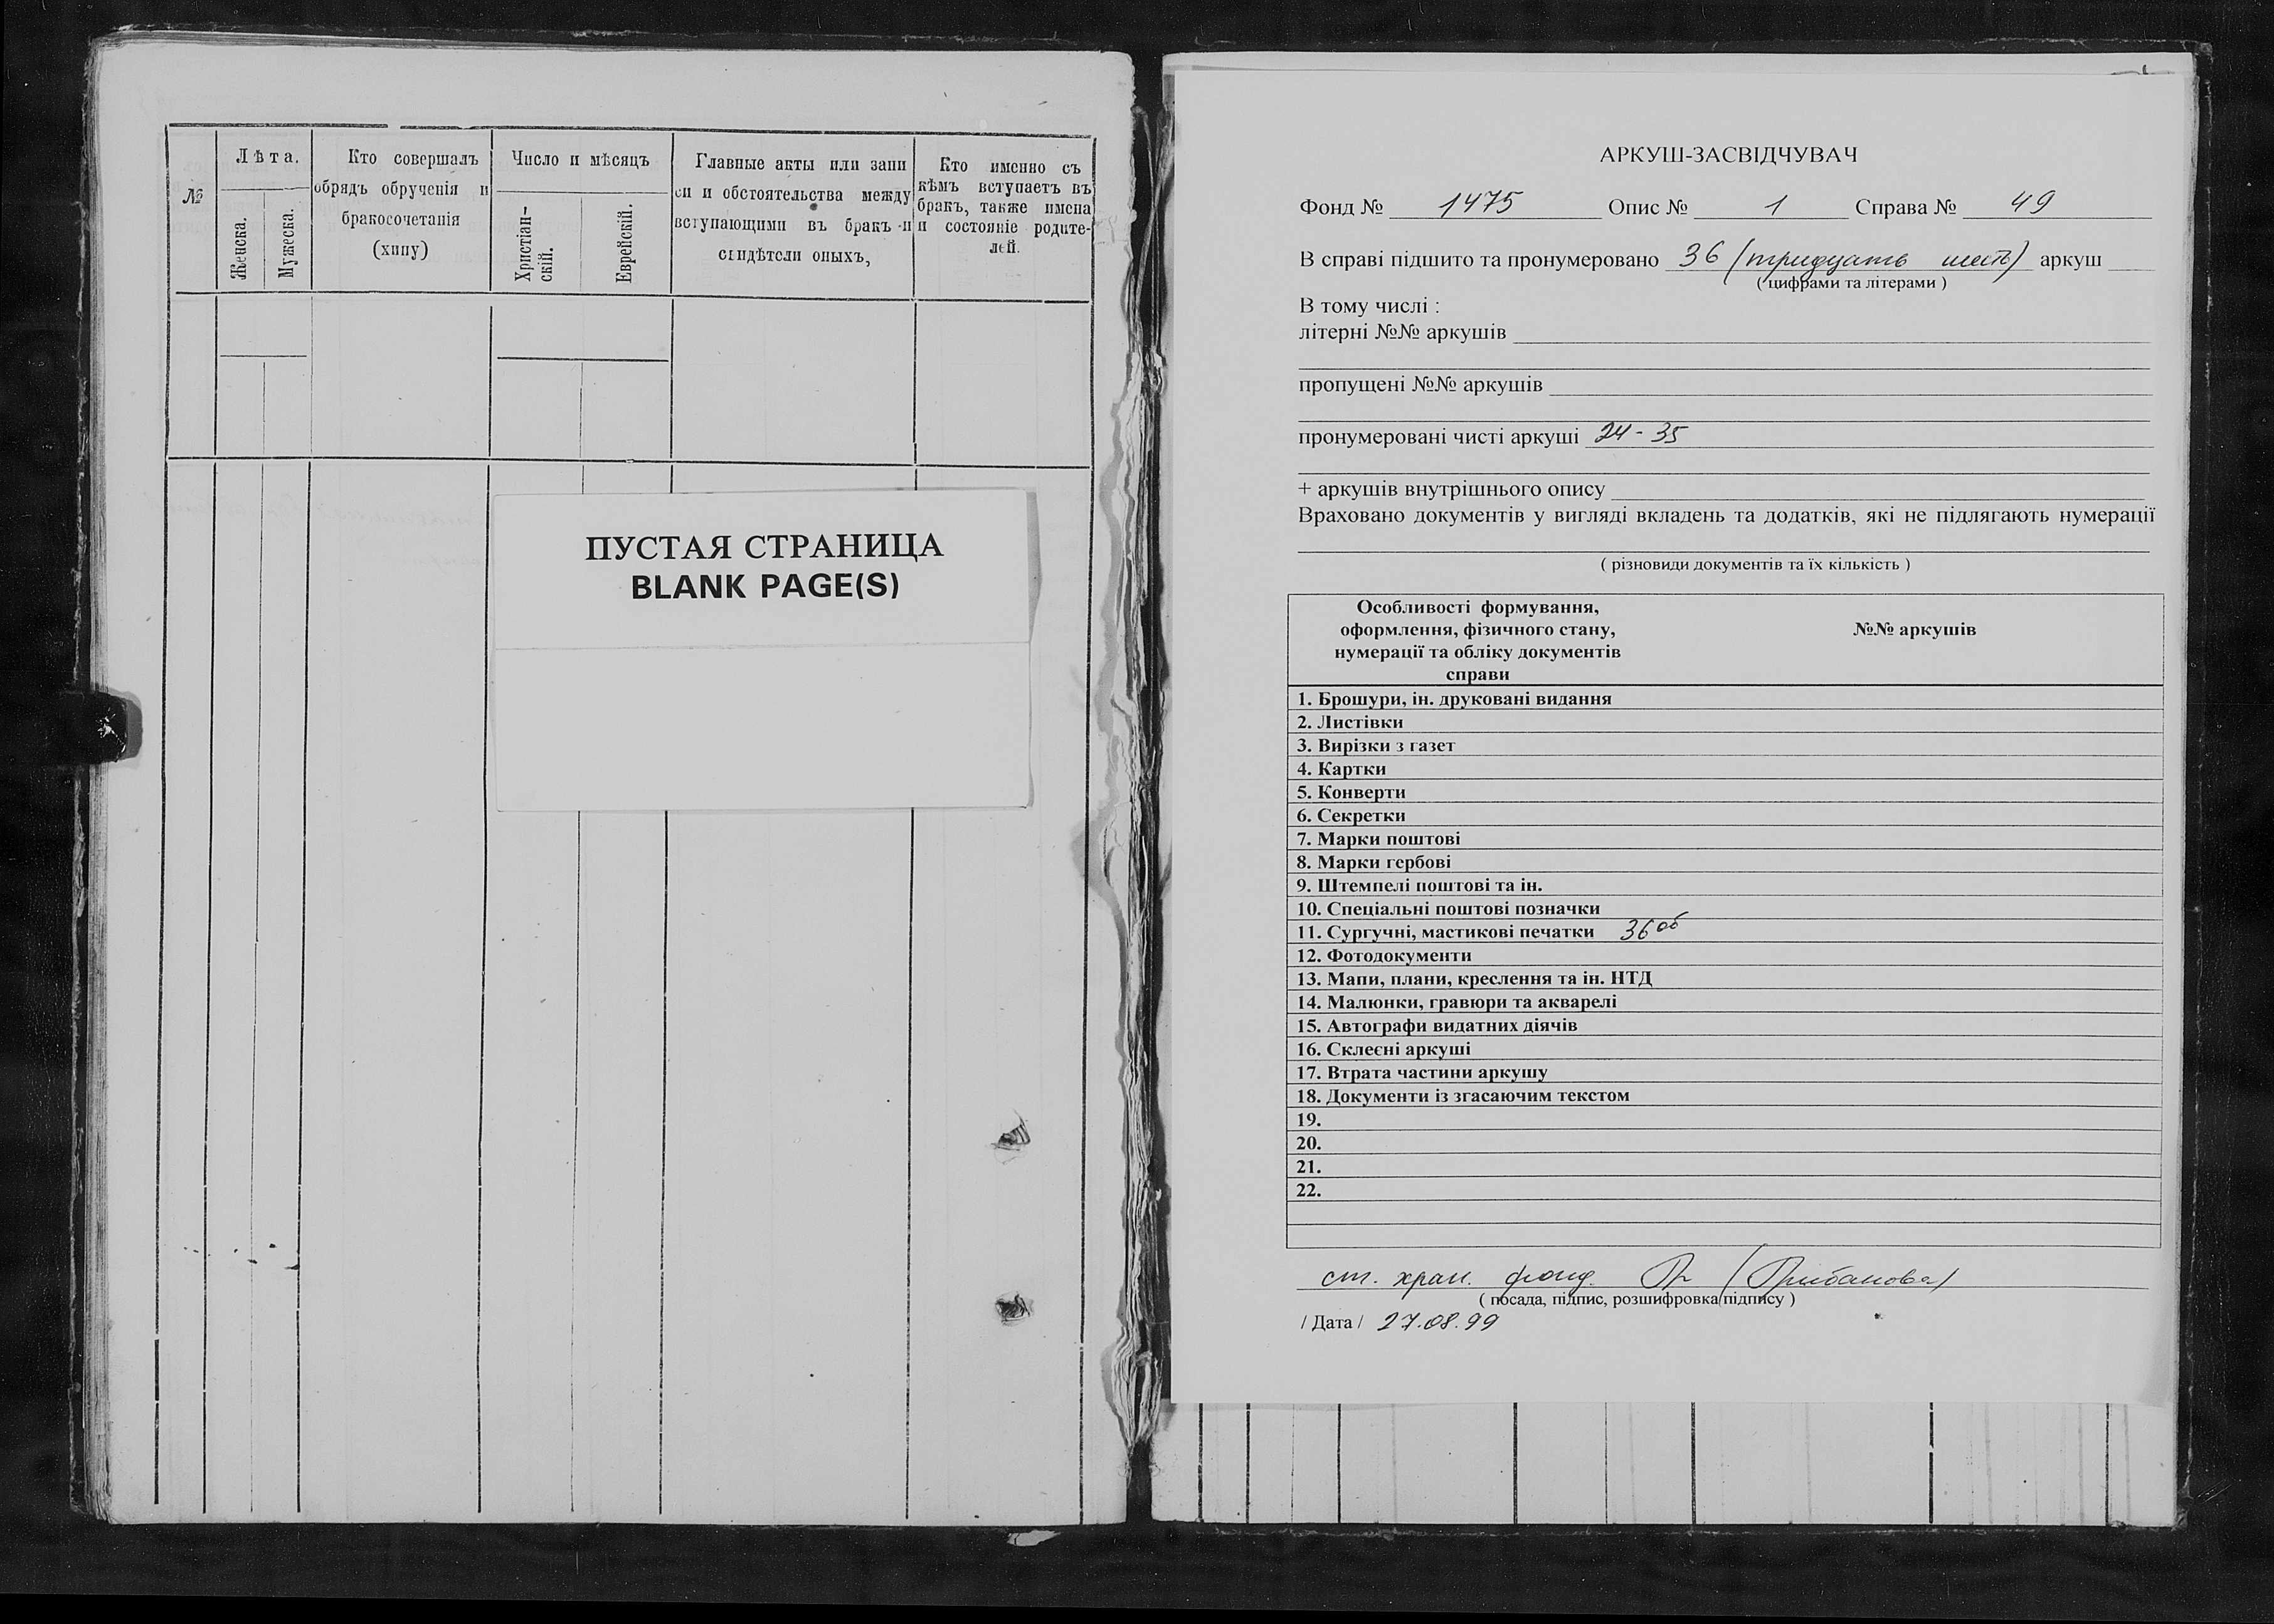 №
Лѣта.
Женска.
Мужеска.
Кто совершалъ
обрядъ обрученія и
бракосочетанія
(хипу)
Число и мѣсяцъ
Христіан-
скій.
Еврейскій.
Главные акты или запи
си и обстоятельства между
вступающими въ бракъ и
свидѣтели оныхъ,
Кто именно съ
кѣмъ вступаетъ въ
бракъ, также имена
и состояніе родите-
лей.
ПУСТАЯ СТРАНИЦА
BLANK PAGE(S)
АРКУШ-ЗАСВІДЧУВАЧ
Фонд № 1475 Опис № 1 Справа № 49
В справі підшито та пронумеровано 36 (тридцать шесть) аркуш
( цифрами та літерами )
В тому числі :
літерні №№ аркушів
пропущені №№ аркушів
пронумеровані чисті аркуші 24-35
+ аркушів внутрішнього опису
Враховано документів у вигляді вкладень та додатків, які не підлягають нумерації
( різновиди документів та їх кількість )
Особливості формування,
оформлення, фізичного стану,
нумерації та обліку документів
справи
№№ аркушів
1. Брошури, ін. друковані видання
2. Листівки
3. Вирізки з газет
4. Картки
5. Конверти
6. Секретки
7. Марки поштові
8. Марки гербові
9. Штемпелі поштові та ін.
10. Спеціальні поштові позначки
11. Сургучні, мастикові печатки 36об
12. Фотодокументи
13. Мапи, плани, креслення та ін. НТД
14. Малюнки, гравюри та акварелі
15. Автографи видатних діячів
16. Склеєні аркуші
17. Втрата частини аркушу
18. Документи із згасаючим текстом
19.
20.
21.
22.
ст. хран. фонд.
( посада, підпис, розшифровка підпису )
/ Дата / 27.08.99